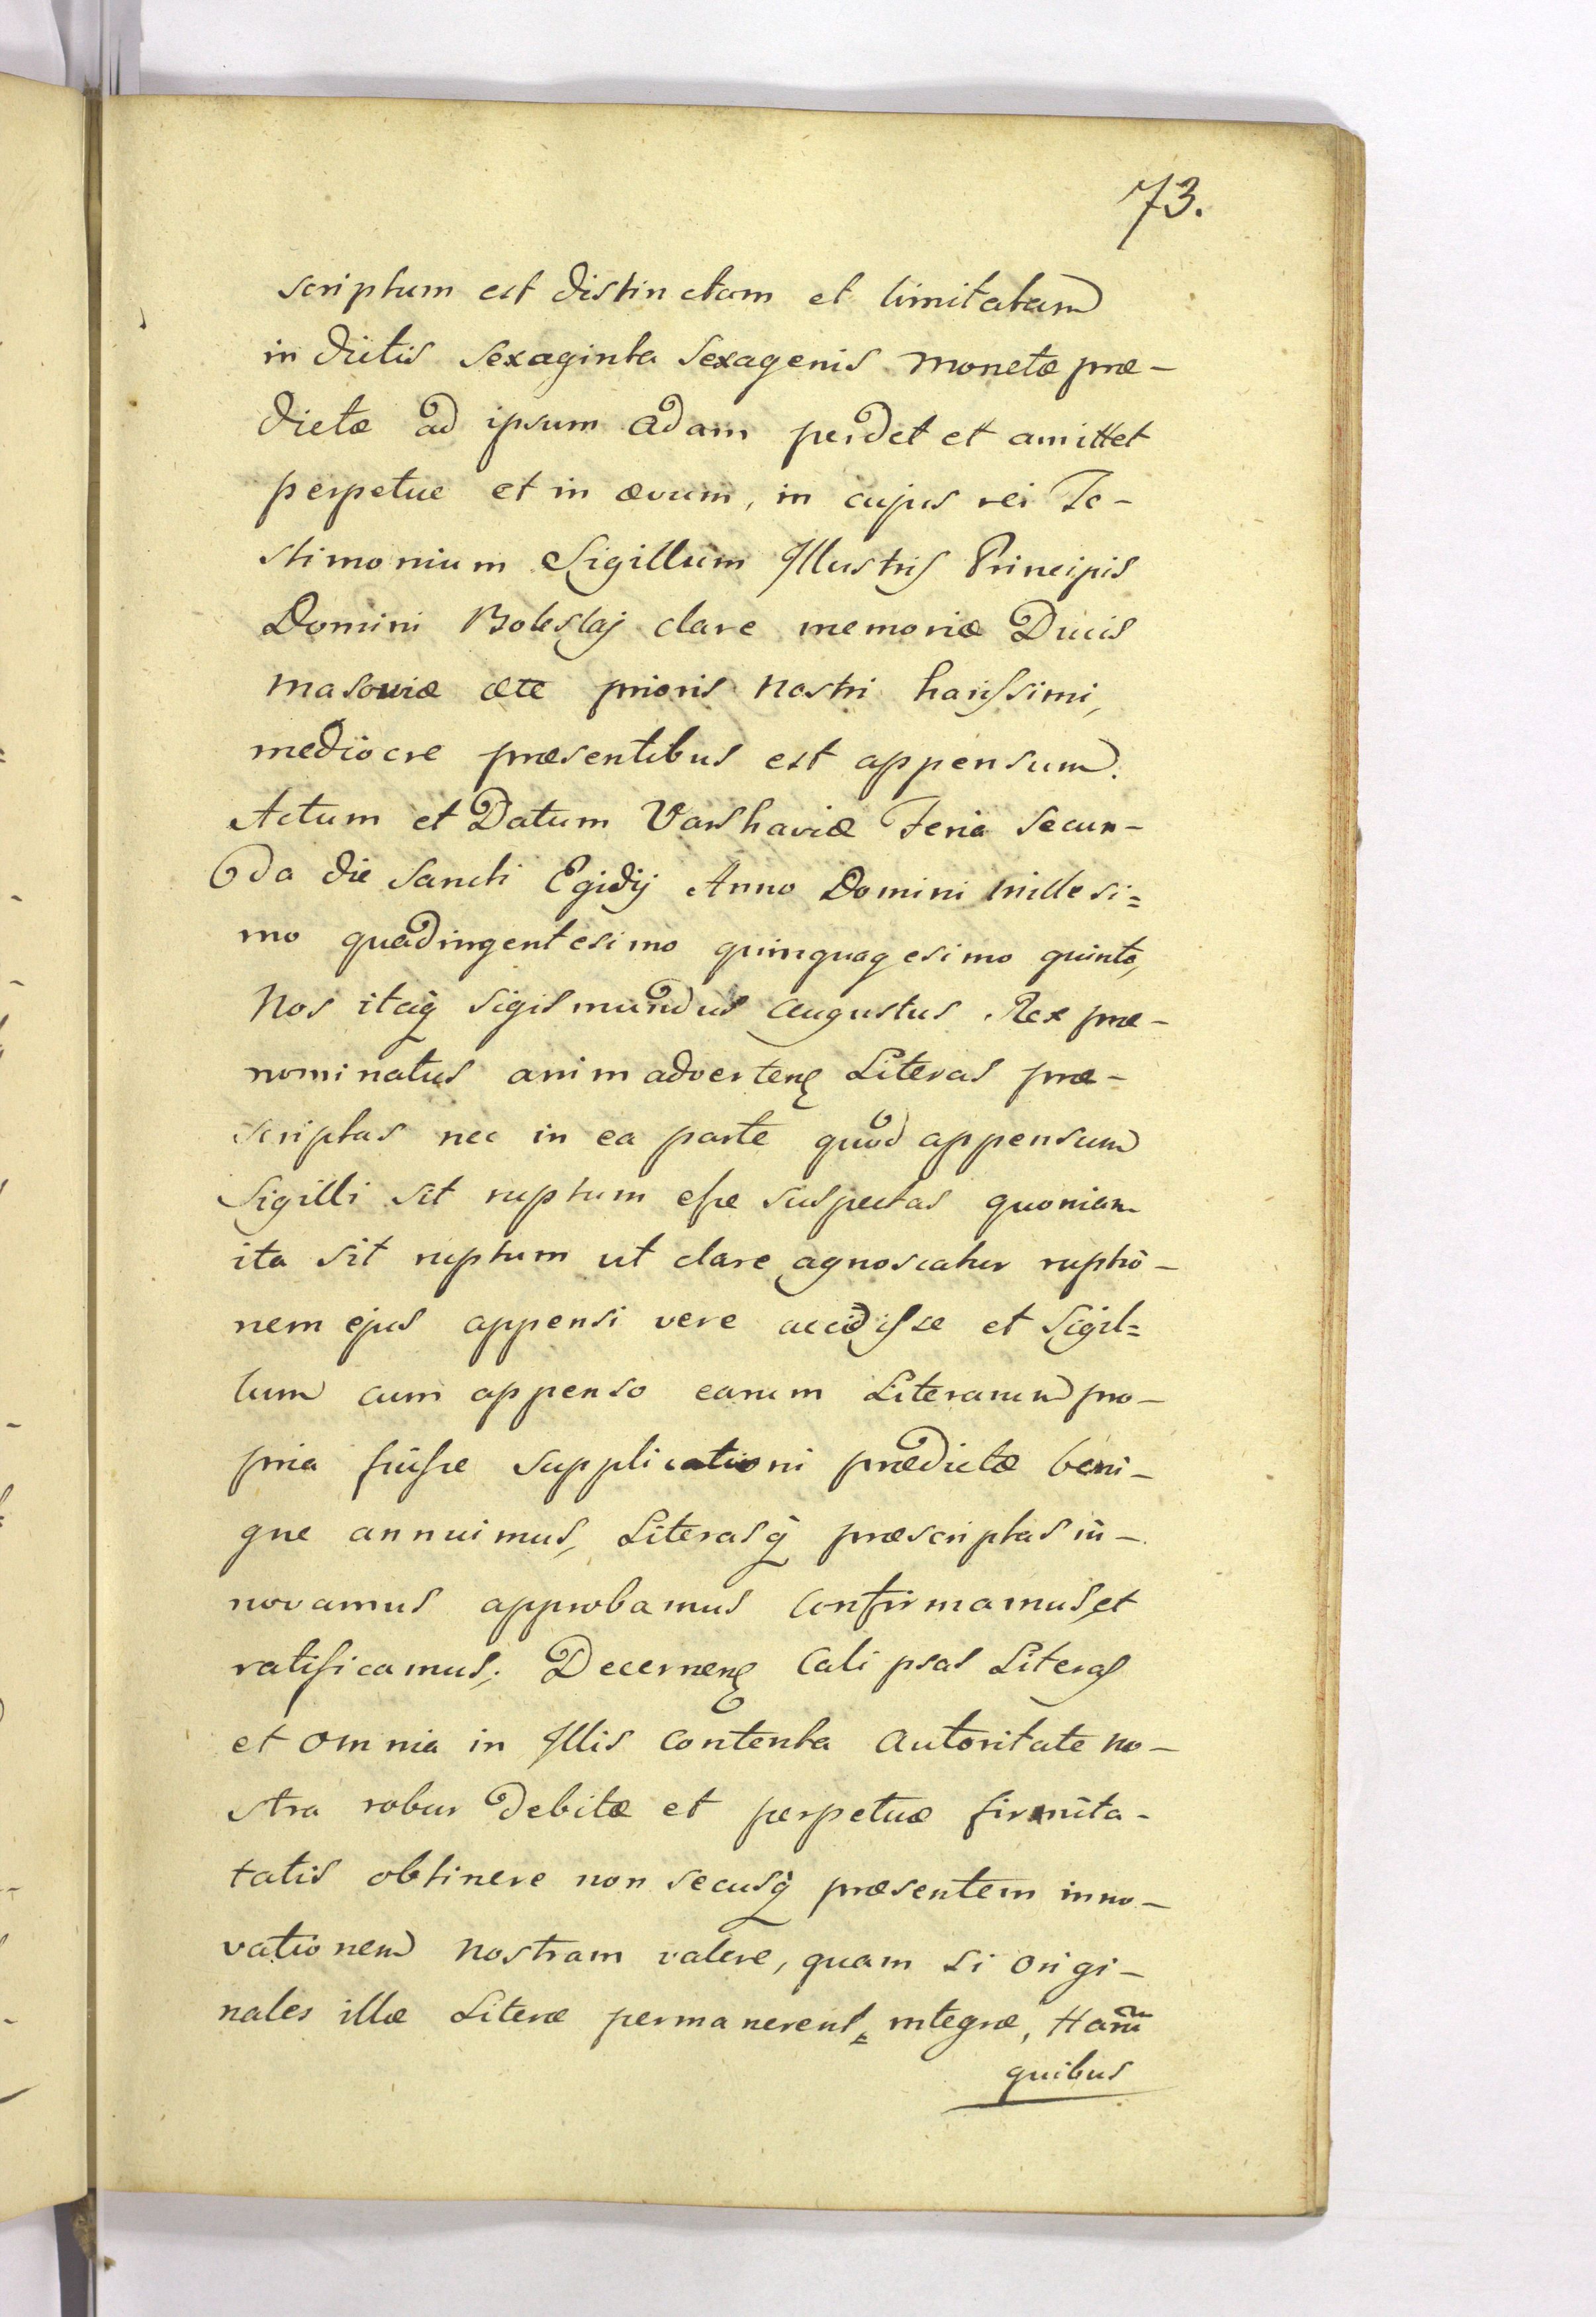 73.
scriptum est distinctam et limitatam
in dictis sexaginta sexagenis monetæ præ-
dictæ ad ipsum Adam perdet et amittet
perpetue et in ævum, in cujus rei Te-
stimonium Sigillum Jllustris Principis
Domini Boleslaj clare memoriæ Ducis
Masoviæ ætc prioris nostri harissimi,
mediocre præsentibus est appensum.
Actum et Datum Varshaviæ Feria secun-
da die Sancti Egidij Anno Domini millesi=
mo quadingentesimo quinquagesimo quinto,
Nos itaq̃ Sigismundus Augustus Rex præ-
nominatus animadvertens Literas præ-
scriptas nec in ea parte quod appensum
Sigilli sit ruptum esse suspectas quoniam
ita sit ruptum ut clare agnoscatur ruptio-
nem ejus appensi vere accidisse et Sigil=
lum cum appenso earum Literarum pro-
pria fuisse supplicationi prædictæ beni-
gne annuimus, Literasq̃ præscriptas in-
novamus approbamus confirmamus, et
ratificamus; Decernens cali psas Literas
et omnia in Jllis contenta autoritate no-
stra robur debitæ et perpetuæ firmita-
tatis obtinere non secusq̃ præsentem inno-
vationem nostram valere, quam si origi-
nales illæ Literæ permanerent integræ, Harũ
quibus